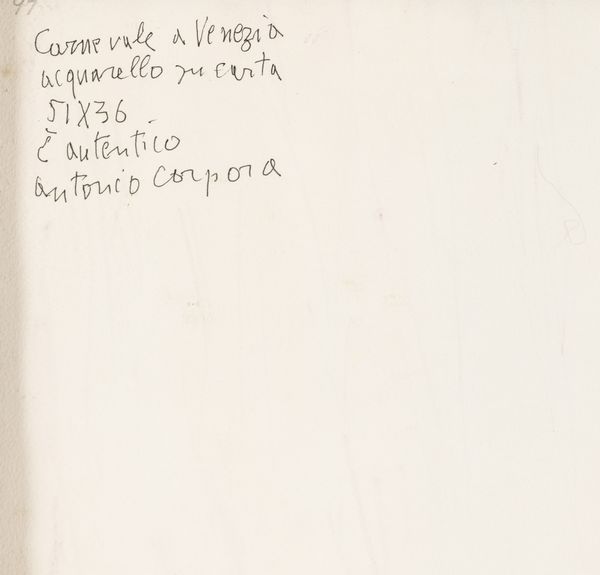 Carnevale a Venezia
acquarello su carta
51X36
È autentico
antonio corpora